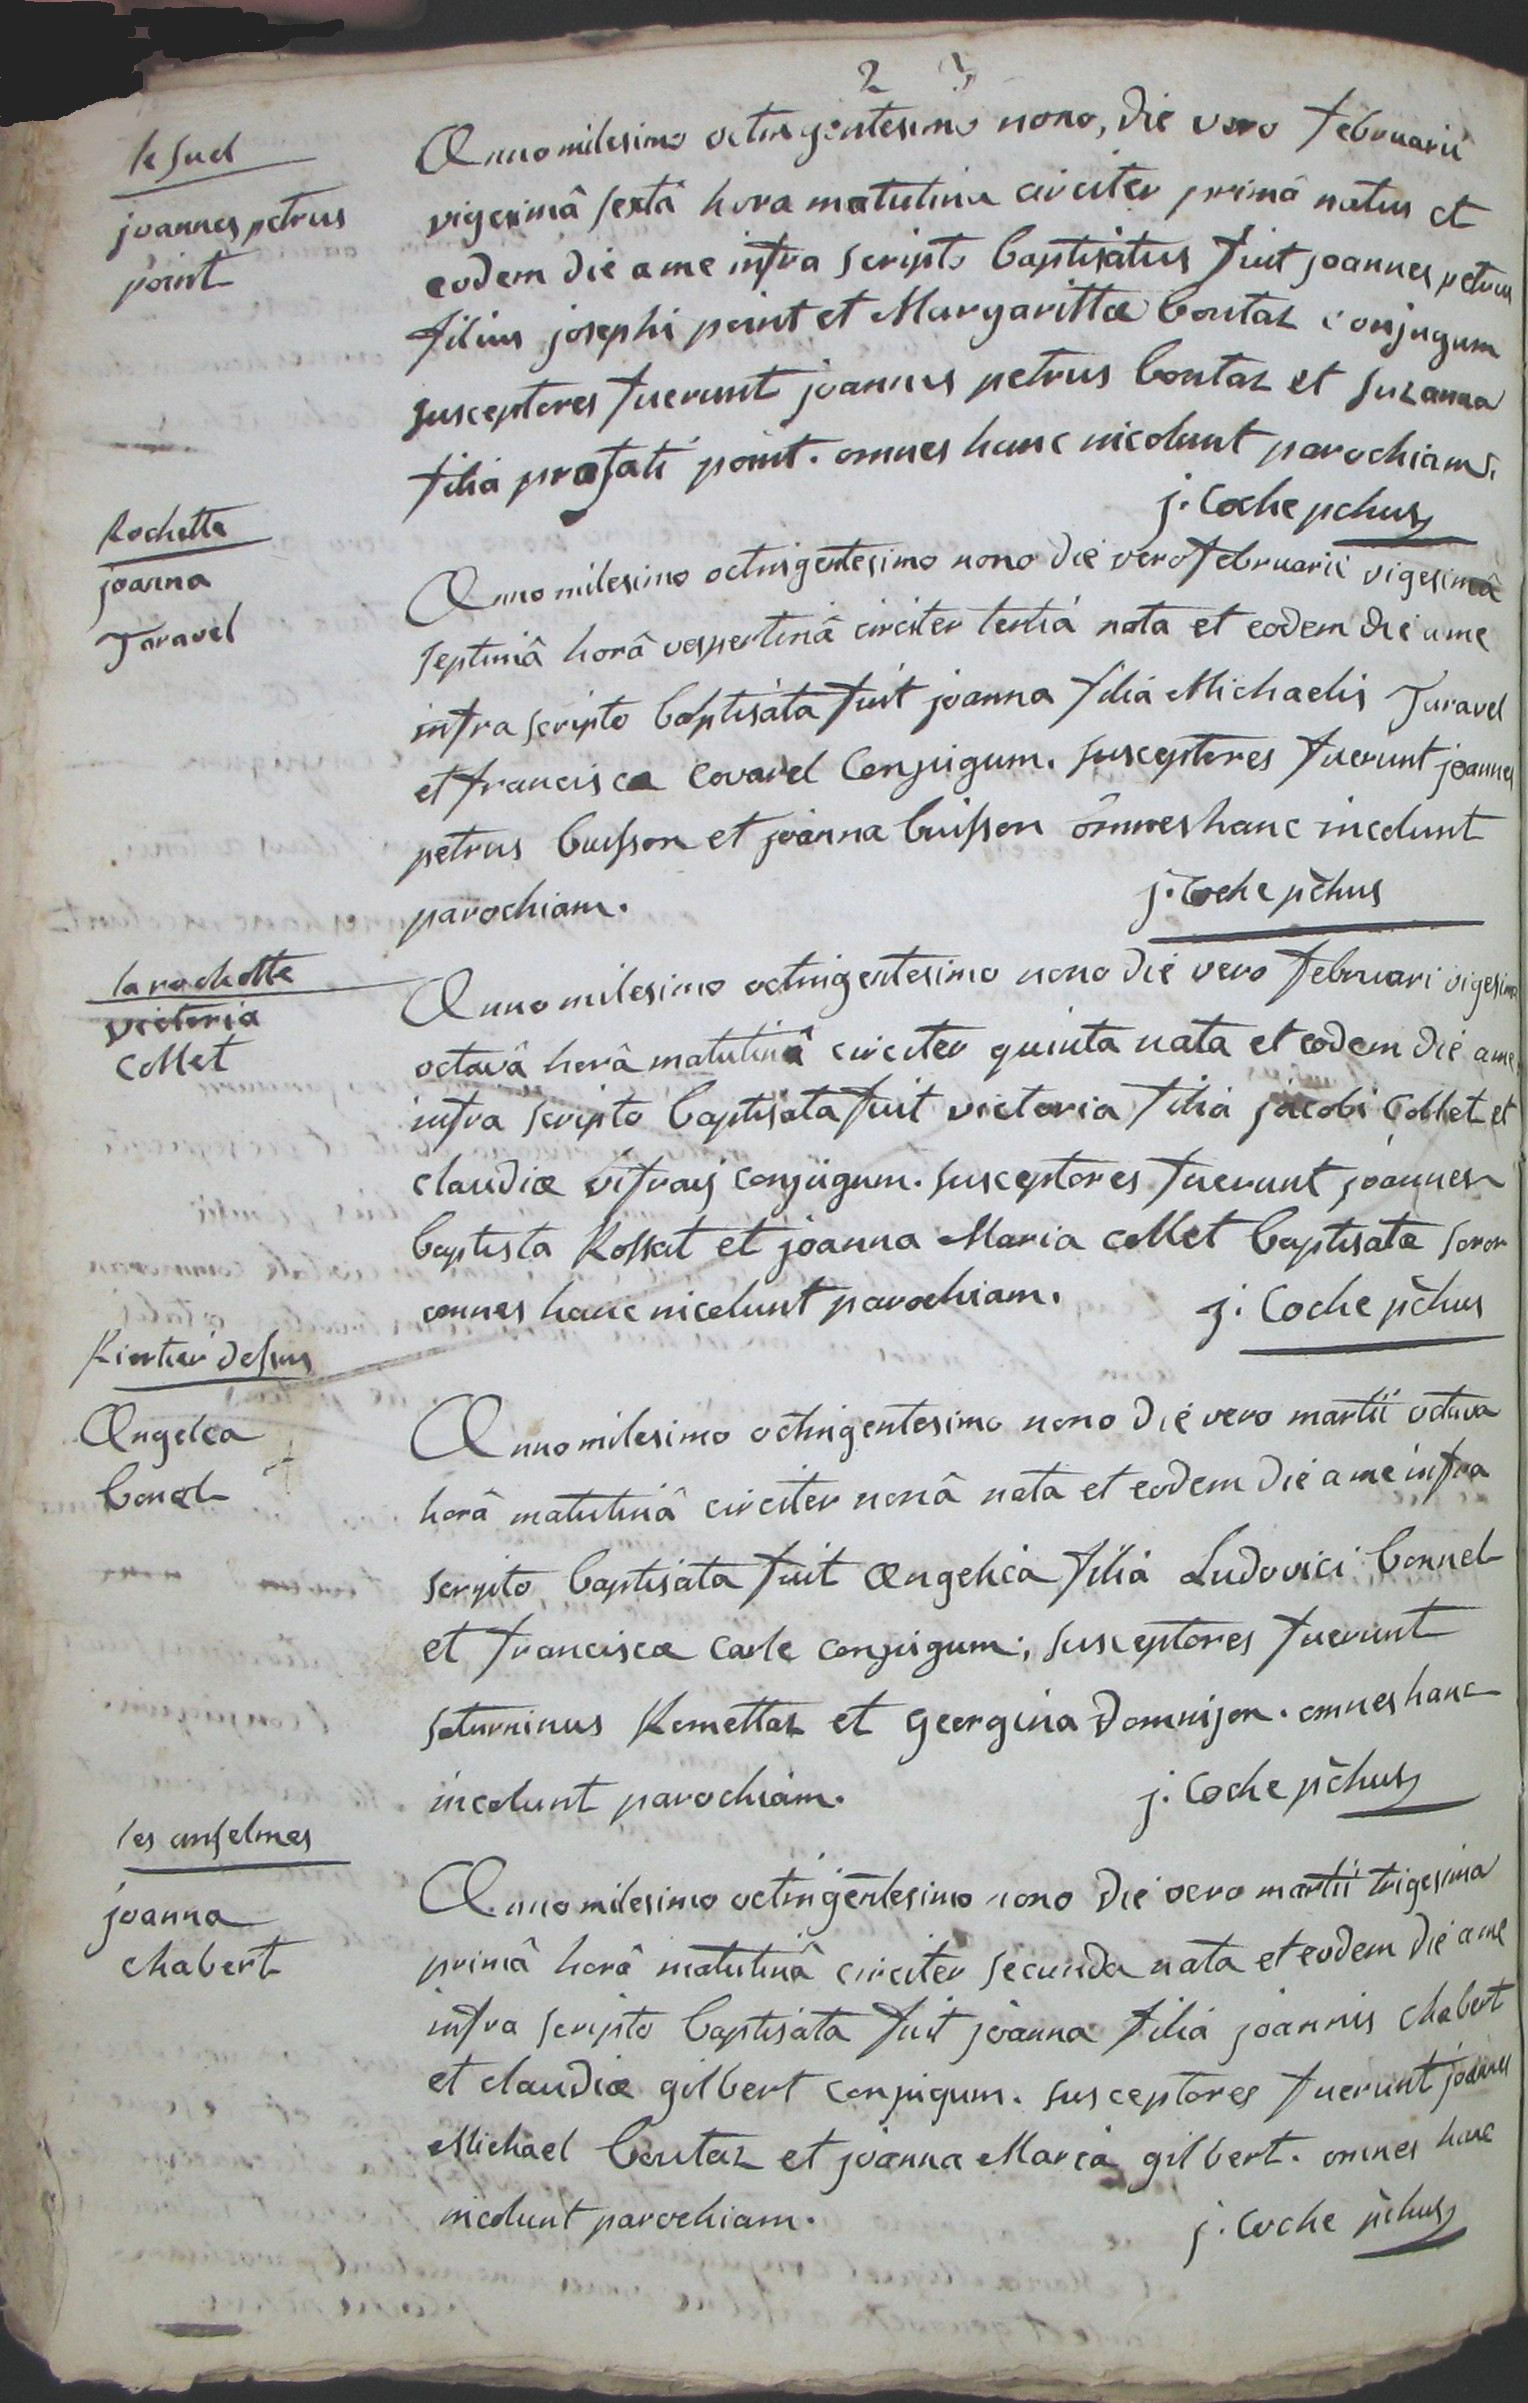 2
le sud
joannes petrus
point
Anno milesimo octingentesimo nono, die vero februarii
vigesimâ sextâ hora matutina circiter primâ natus et
eodem die a me infra scripto baptisatus fuit joannes petrus
filius josephi point et Margarittæ boutaz conjugum
susceptores fuerunt joannes petrus boutaz et suzanna
filia præfati point. omnes hanc incolunt parochiam.
j. Coche pchus
Rochette
joanna
Taravel
Anno milesimo octingentesimo nono die vero februarii vigesimâ
septimâ horâ vespertinâ circiter tertiá nata et eodem die a me
infra scripto baptisata fuit joanna filia Michaelis Taravel
et francisca Covarel Conjugum. susceptores fuerunt joannes
petrus buisson et joanna buisson omnes hanc incolunt
parochiam.
j. Coche pchus
la rochette
victoria
Collet
Anno milesimo octingentesimo nono die vero februari vigesima
octavâ horâ matutinâ circiter quinta nata et eodem die a me
infra scripto baptisata fuit victoria filia jacobi Collet et
claudiæ vifray conjugum. susceptores fuerunt joannes
baptista Rossat et joanna Maria collet baptisatæ soror
omnes hanc incolunt parochiam.
j. Coche pchus
Rientier dessus
Angelca
bonel
Anno milesimo octingentesimo nono die vero martii octava
horâ matutinâ circiter nonâ nata et eodem die a me infra
scripto baptisata fuit Angelica filia Ludovici bonnel
et franciscæ carle conjugum; susceptores fuerunt
saturninus Romettaz et georgina domnijon. omnes hanc
incolunt parochiam.
j. Coche pchus
les anselmes
joanna
chabert
Anno milesimo octingentesimo nono die vero martii trigesima
primâ horâ matutinâ circiter secunda nata et eodem die a me
infra scripto baptisata fuit joanna filia joannis chabert
et claudiæ gilbert conjugum. susceptores fuerunt joannes
Michael boutaz et joanna Maria gilbert. omnes hanc
incolunt parochiam.
j. Coche pchus